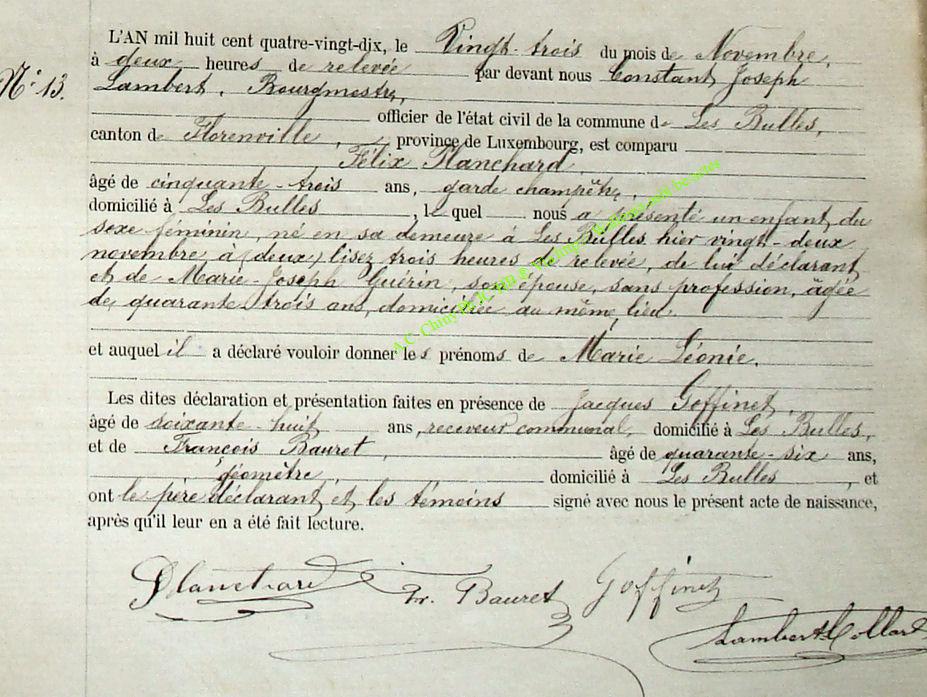 L'AN mil huit cent quatre-vingt-dix, le Vingt-trois du mois de Novembre,
à deux heures de relevée par devant nous Constant Joseph
N° 13. Lambert, Bourgmestre,
officier de l'état civil de la commune de Les Bulles,
canton de Florenville, province de Luxembourg, est comparu
Félix Planchard,
âgé de cinquante-trois ans, garde champêtre,
domicilié à Les Bulles, lequel nous a présenté un enfant du
sexe féminin, né en sa demeure à Les Bulles hier vingt-deux
novembre, à (deux) lisez trois heures de relevée, de lui déclarant
et de Marie-Joseph Guérin, son épouse, sans profession, âgée
de quarante-trois ans, domiciliée au même lieu.
et auquel il a déclaré vouloir donner les prénoms de Marie Léonie.
Les dites déclaration et présentation faites en présence de Jacques Goffinet,
âgé de soixante-huit ans, receveur communal, domicilié à Les Bulles,
et de François Bauret, âgé de quarante-six ans,
géomètre, domicilié à Les Bulles, et
ont le père déclarant et les témoins signé avec nous le présent acte de naissance,
après qu'il leur en a été fait lecture.
Planchard Fr. Bauret Goffinet
Lambert-Collart